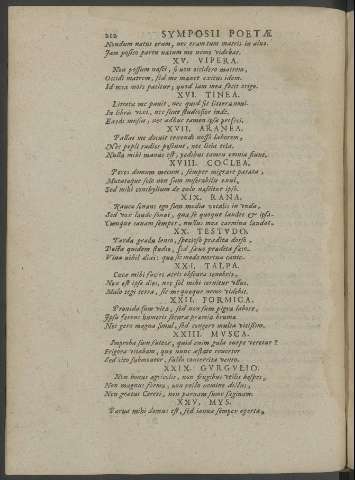 212 SYMPOSII POETÆ
Nondum natus eram, nec eram tum matris in alvo.
Jam posito partu natum me nemo videbat.
XV. VIPERA.
Non possum nasci, si non occidero matrem,
Occidi matrem, sed me manet exitus idem.
Id mea mors patitur, quod iam mea fecit origo.
XVI. TINEA.
Litera me pavit, nec quid sit littera novi.
In libris vixi, nec sum studiosior inde.
Exedi musas, nec adhuc tamen ipsa profeci.
XVII. ARANEA.
Pallas me docuit texendi nosse laborem,
Nec pepli radios poscunt, nec licia telæ.
Nulla mihi manus est, pedibus tamen omnia fiunt.
XVIII. COCLEA.
Porto domum mecum, semper migrare parata,
Mutatoque solo non sum miserabilis exul,
Sed mihi concilium de cælo nascitur ipso.
XIX. RANA.
Rauca sonans ego sum media vocalis in unda,
Sed vox laude sonat, quasi se quoque laudet & ipsa.
Cumque canam semper, nullus mea carmina laudat.
XX. TESTUDO.
Tarda gradu lento, specioso prædita dorso,
Docta quidem studio, sed sævo prodita fato.
Viva nihil dixi: quæ sic modo mortua canto.
XXI. TALPA.
Cæca mihi facies atris obscura tenebris.
Nox est ipse dies, nec sol mihi cernitur ullus.
Malo tegi terra, sic me quoque nemo videbit.
XXII. FORMICA.
Provida sum vitæ, sed non sum pigra labore,
Ipsa ferens humeris securæ præmia brumæ.
Nec gero magna simul, sed congero multa vicissim.
XXIII. MUSCA.
Improba sum fateor, quid enim gula turpe veretur?
Frigora vitabam, quæ nunc æstate revertor
Sed cito submoveor, falso conterrita vento.
XXIX. GURGULIO.
Non bonus agricolis, non frugibus utilis hospes,
Non magnus forma, non recto nomine dictus,
Non gratus Cereri, non parvam sumo saginam.
XXV. MUS.
Parva mihi domus est, sed ianua semper aperta,